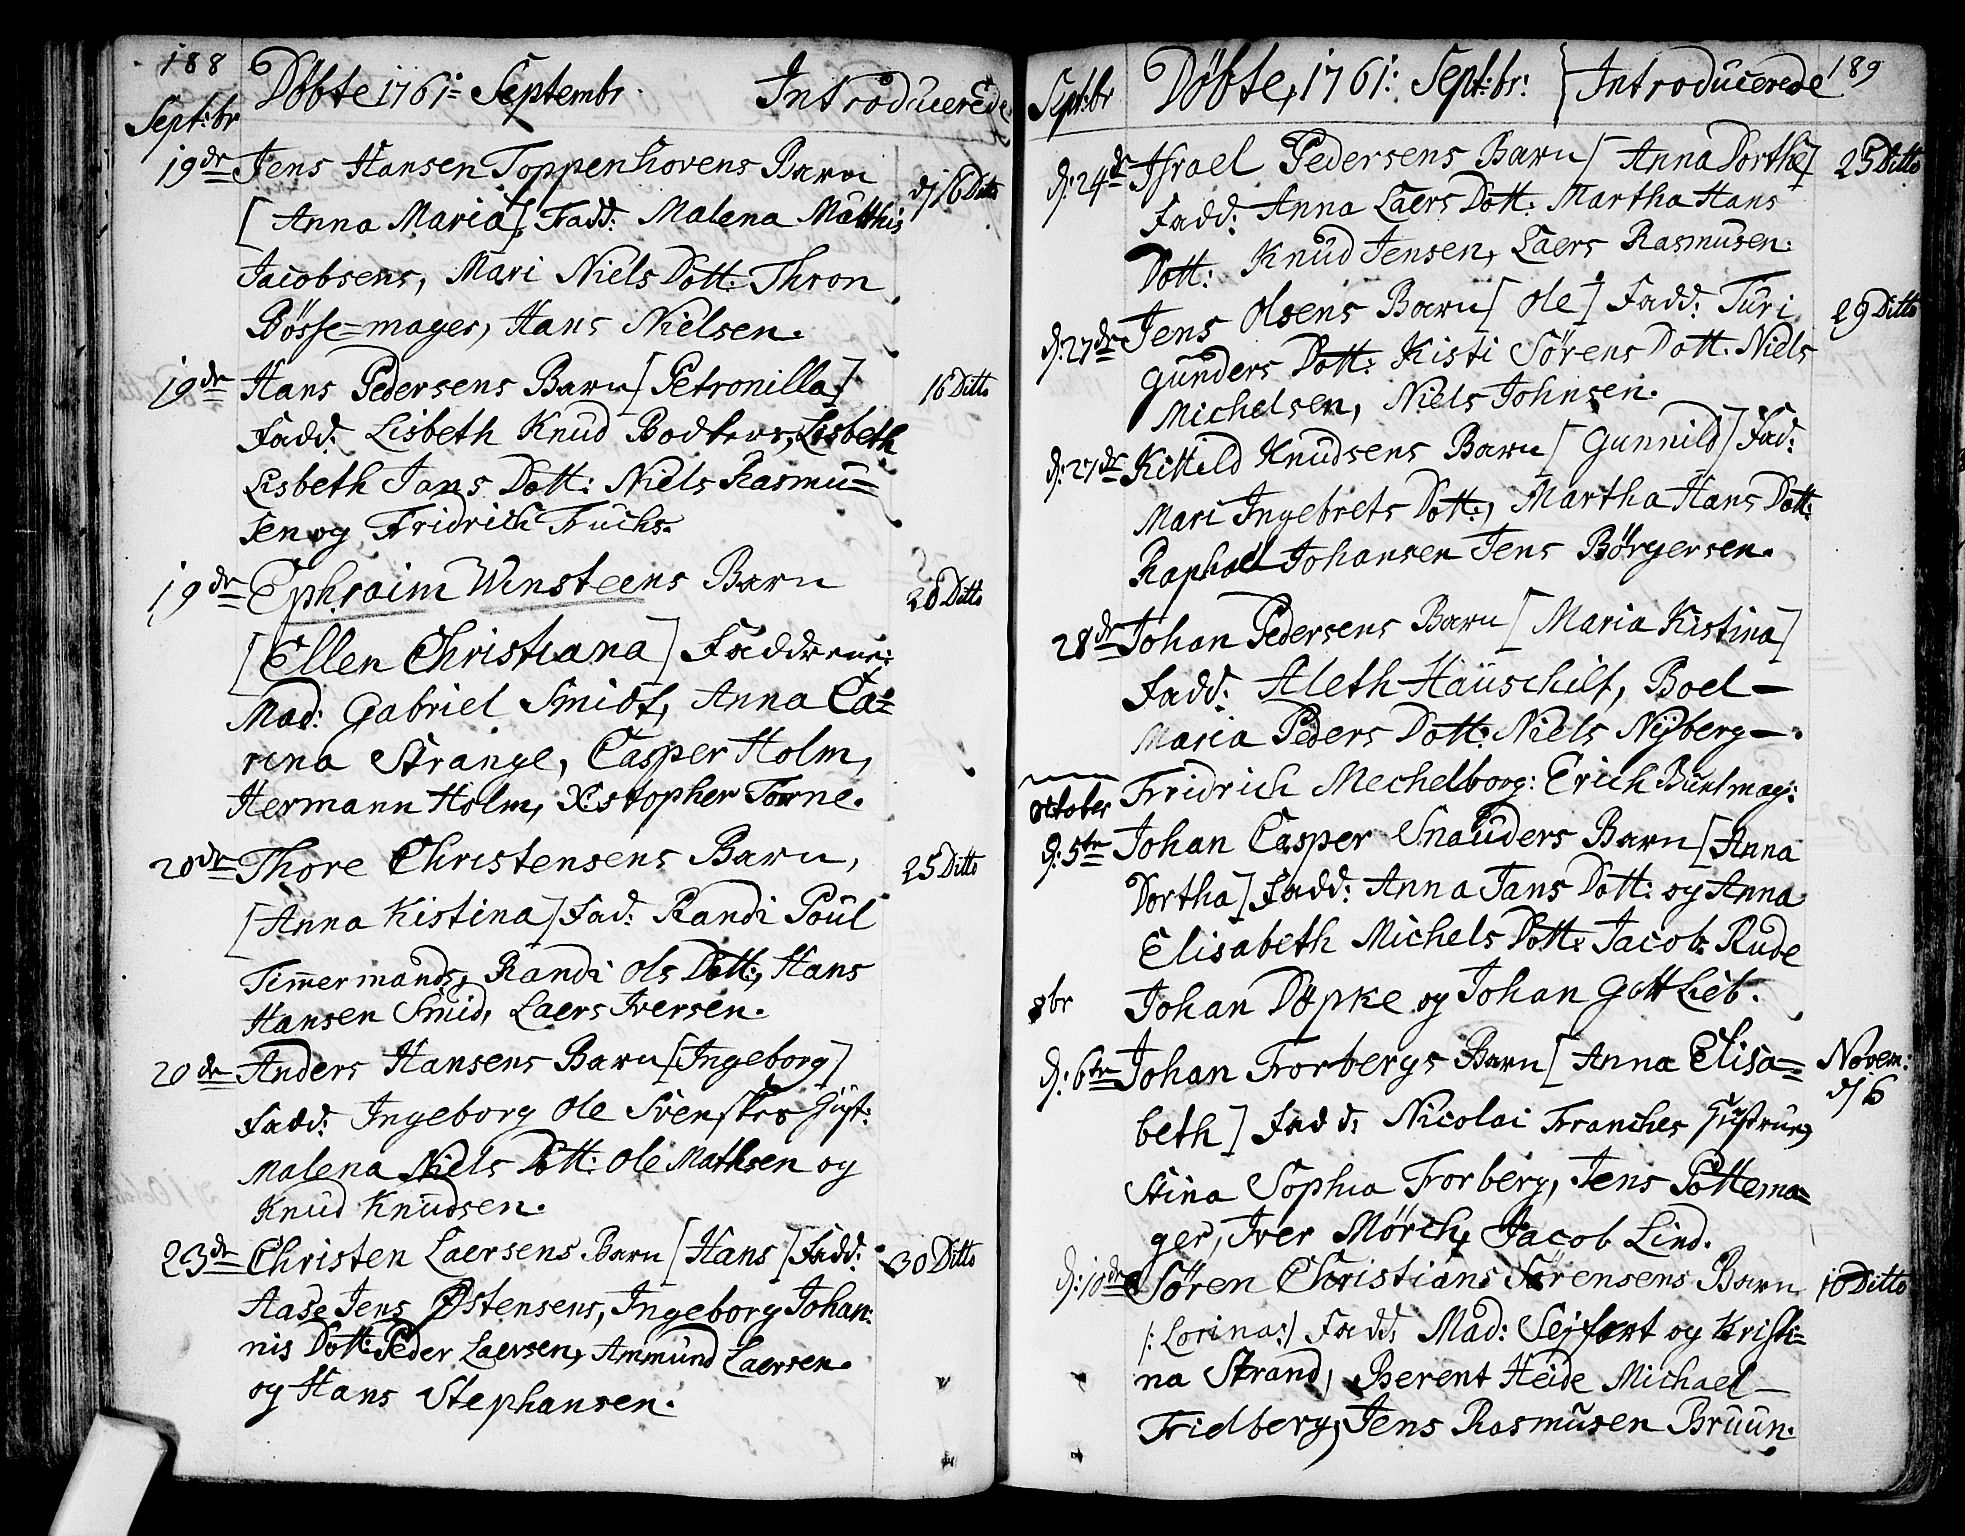 188
Döbte 1761: Septembr. Introducerede
Sept:br
19de Jens Hansen Toppenhovens Barn d/16 Ditto
[Anna Maria], Fadd: Malena Matthis
Jacobsens, Mari Niels Dott: Thron
Bösse=mager, Hans Nielsen.
19de Hans Pedersens Barn [Petronilla] 16 Ditto
Fadd: Lisbeth Knud Bodkers, Lisbeth
Lisbeth Jans Dott: Niels Rasmu=
sen og Fridrich Fuchs.
19de Ephraim Wensteens Barn 26 Ditto
[Ellen Christiana] Fadderne:
Mad: Gabriel Smidt, Anna Ca=
rina Strange, Casper Holm,
Hermann Holm, Xstopher Torne.
20de Thore Christensens Barn, 25 Ditto
[Anna Kistina] Fad: Randi Poul
Tim̅ermands, Randi Ols Dott:, Hans
Hansen Smid, Laers Iversen.
20de Anders Hansens Barn [Ingeborg]
Fadd: Ingeborg Ole Svenskes Hust:
Malena Niels Dott: Ole Mathsen og
Knud Knudsen.
23de Christen Laersens Barn [Hans] Fadd: 30 Ditto
Aase Jens Østensens, Ingeborg Johan:
nis Dott: Peder Laersen, Ammund Laersen.
og Hans Stephansen.
189
Sept:br Döbte, 1761: Sept:br: Introducerede
d: 24de Israel Pedersens Barn [Anna Dorthe] 25 Ditto
Fadd: Anna Laers Dott: Martha Hans
Dott: Knud Jensen, Laers Rasmusen.
d: 27de Jens Olsens Barn [Ole] Fadd: Turi 29 Ditto
Gunders Dott: Kisti Sörens Dott: Niels
Michelsen, Niels Johnsen.
d: 27de Kittild Knudsens Barn [Gunnild] Fad:
Mari Ingebrets Dott:, Martha Hans Dott:
Raphael Johansen Jens Börgersen.
28de Johan Pedersens Barn [Maria Kistina]
Fadd: Aleth Haüschilt, Boel
Maria Peders Dott: Niels Nyberg
Fridrich Mechelborg: Erich Buntmag:
October
d: 5te Johan Casper Snauders Barn [Anna
Dortha] Fadd: Anna Jans Dott: og Anna
Elisabeth Michels Dott: Jacob Rude
8br Johan Döpke og Johan Gottlieb.
d: 6te Johan Forbergs Barn [Anna Elisa= Novem:
beth] Fadd: Nicolai Franches Hustrue, d/6
Stina Sophia Forberg, Jens Pottema=
ger, Iver Mörch, Jacob Lind.
d: 10de Sören Christians Sørensens Barn 10 Ditto
/:Lorina:/ Fadd: Mad: Seifart og Kristi=
na Strand, Berent Heide Michael
Fridberg, Jens Rasmusen Bruun.